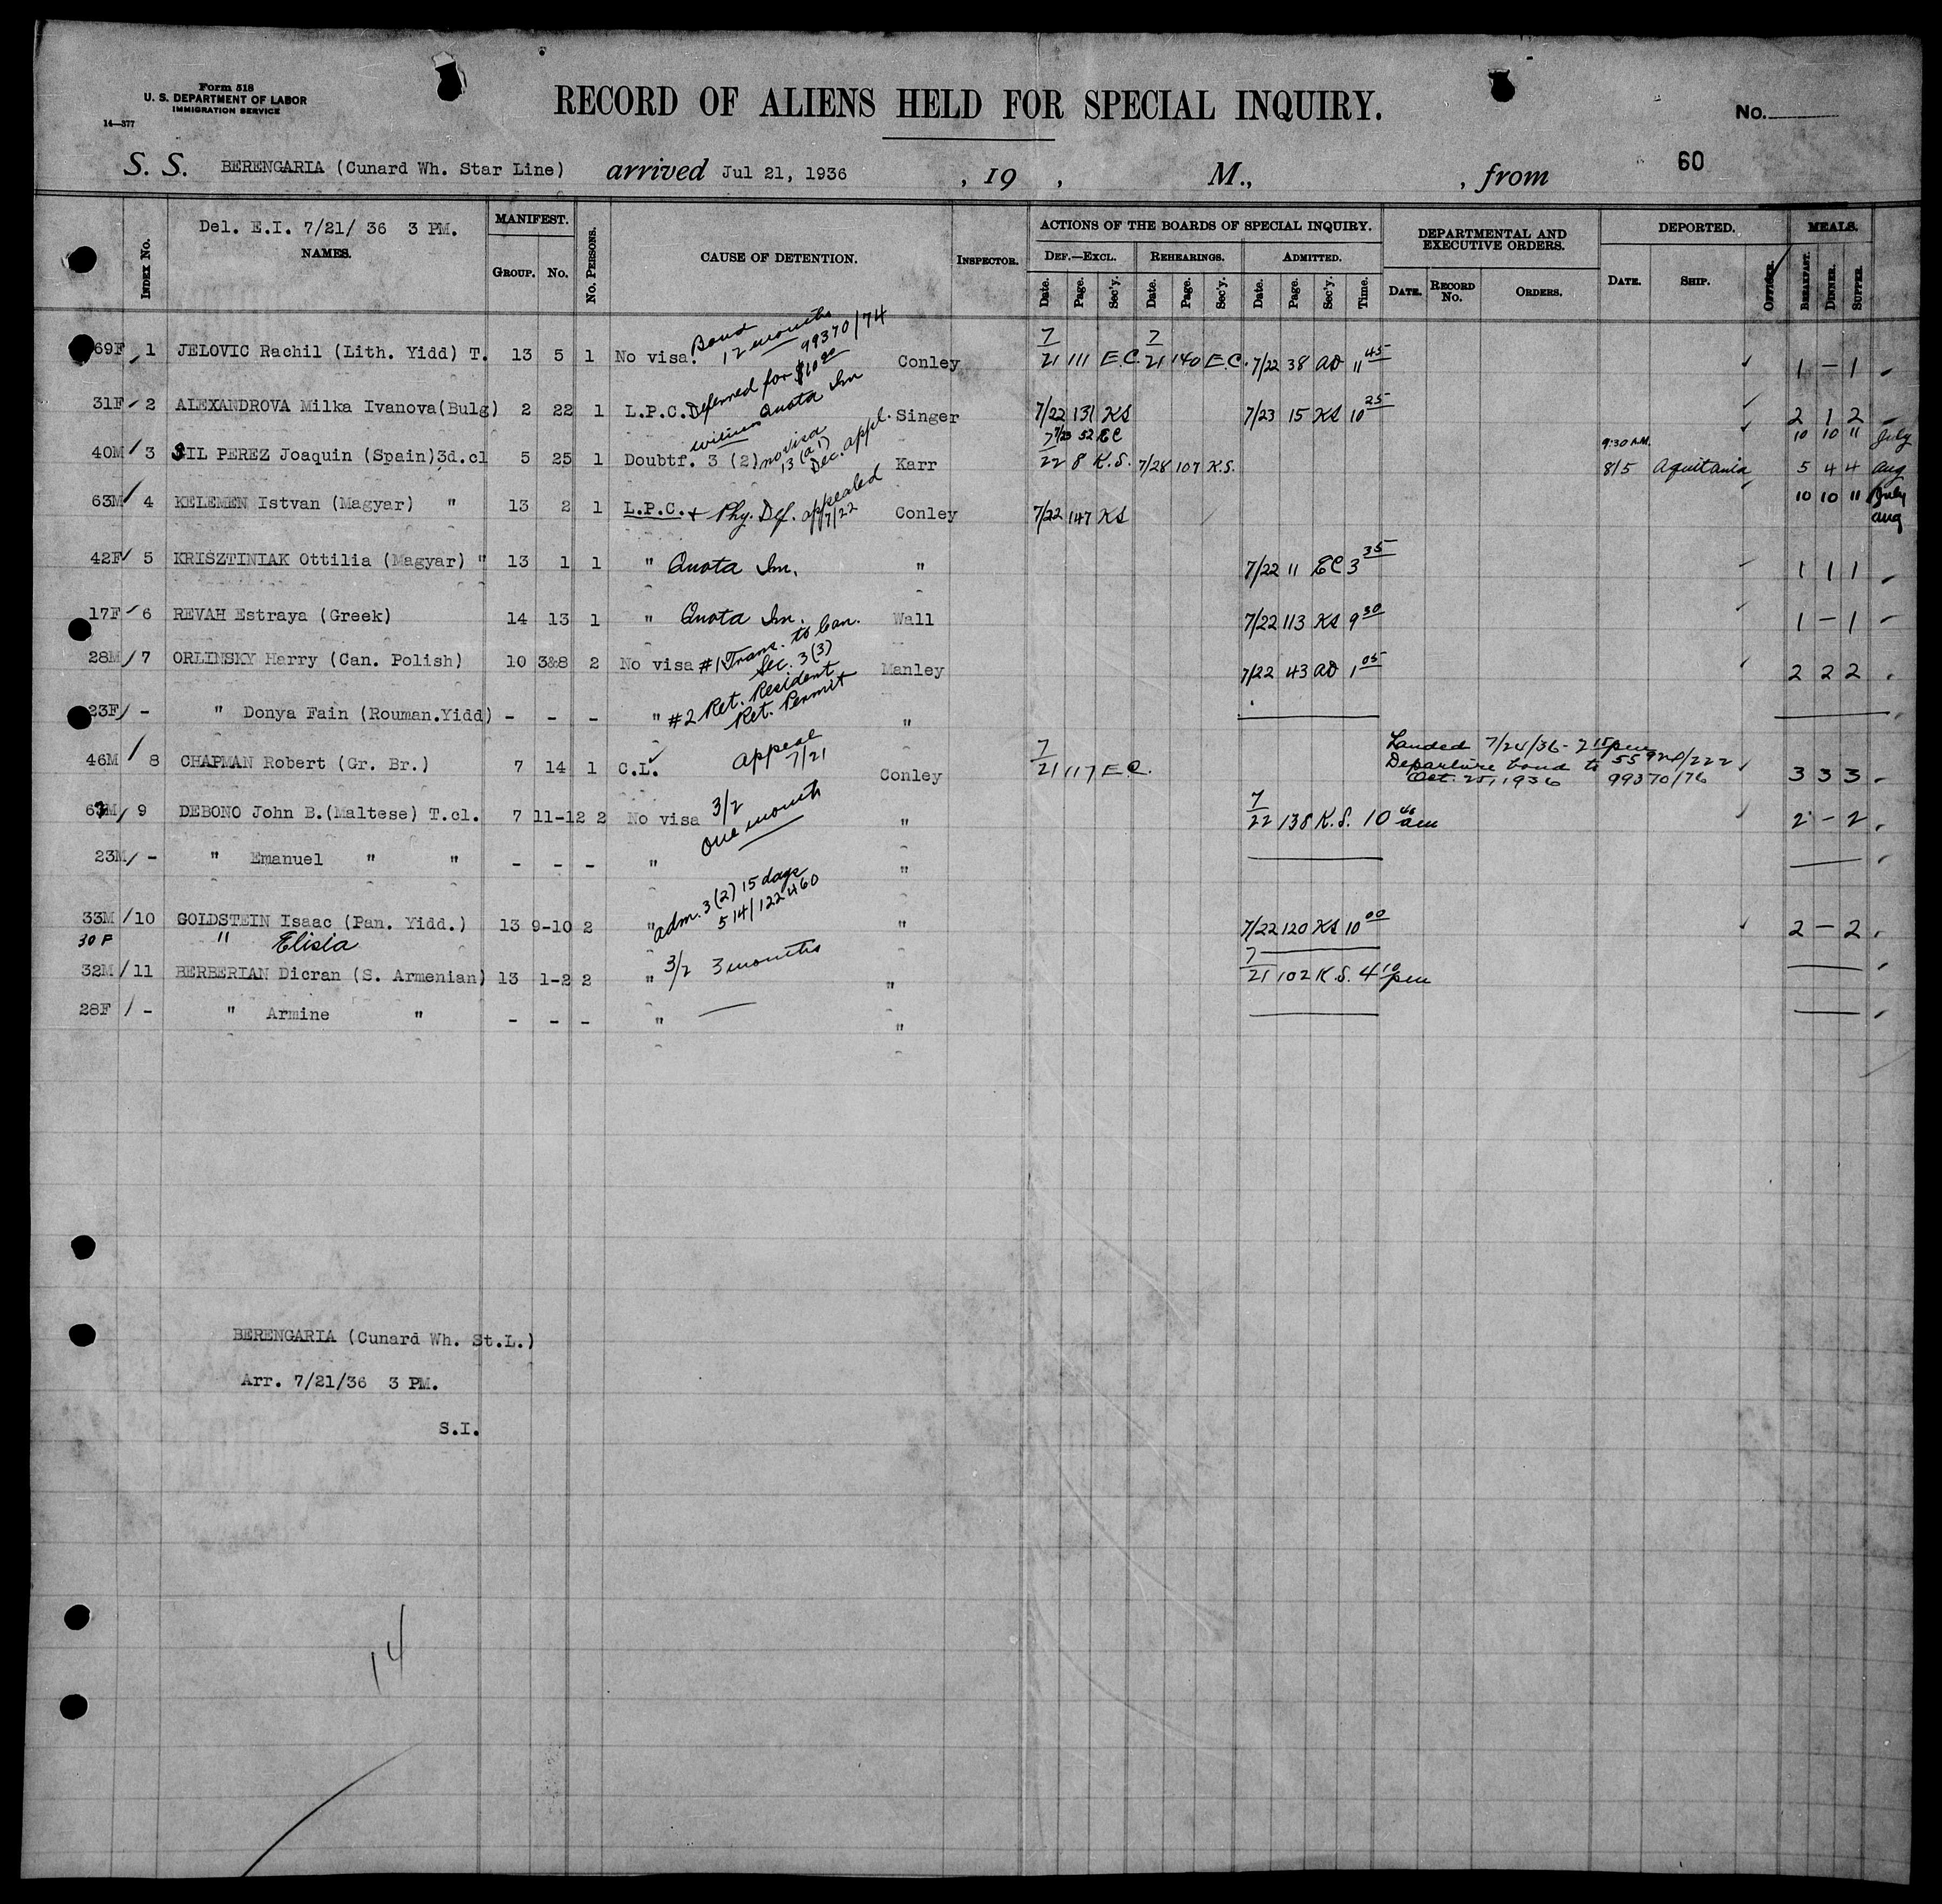 Form 518
U. S. DEPARTMENT OF LABOR
IMMIGRATION SERVICE
14—377
RECORD OF ALIENS HELD FOR SPECIAL INQUIRY.
No.
S. S. BERENGARIA (Cunard Wh. Star Line) arrived Jul 21, 1936 , 19 , M., , from 60
Del. E.I. 7/21/ 36 3 PM.
INDEX No. NAMES. MANIFEST. GROUP. No. No. PERSONS. CAUSE OF DETENTION. INSPECTOR. ACTIONS OF THE BOARDS OF SPECIAL INQUIRY. DEPARTMENTAL AND EXECUTIVE ORDERS. DEPORTED. MEALS.
DEF.—EXCL. REHEARINGS. ADMITTED.
Date. Page. Sec'y. Date. Page. Sec'y. Date. Page. Sec'y. Time. DATE. RECORD No. ORDERS. DATE. SHIP. OFFICER. BREAKFAST. DINNER. SUPPER.
69F 1 JELOVIC Rachil (Lith. Yidd) T. 13 5 1 No visa. Bond 12 months 99370/74 Conley 7/21 111 E.C. 7/21 140 E.C. 7/22 38 AD 11 45 1 – 1
31F 2 ALEXANDROVA Milka Ivanova(Bulg) 2 22 1 L.P.C. Deferred for $10 00 witness Quota Im Singer 7/22 131 KS 7/23 15 KS 10 25 2 1 2
7/23 52 EC
40M 3 GIL PEREZ Joaquin (Spain)3d.cl 5 25 1 Doubtf. 3 (2) no visa 13 (a 1) Dec. appl. Karr 7/22 8 K.S. 7/28 107 K.S. 9:30 AM. 8/5 Aquitania 10 10 11 July
5 4 4 Aug
63M 4 KELEMEN Istvan (Magyar) " 13 2 1 L.P.C. + Phy. Def. appealed 7/22 Conley 7/22 147 KS 10 10 11 July
Aug
42F 5 KRISZTINIAK Ottilia (Magyar) " 13 1 1 " Quota Im. " 7/22 11 EC 3 35 1 1 1
17F 6 REVAH Estraya (Greek) 14 13 1 " Quota Im. Wall 7/22 113 KS 9 30 1 – 1
28M 7 ORLINSKY Harry (Can. Polish) 10 3&8 2 No visa #1 Trans. to Can. Sec. 3 (3) Manley 7/22 43 AD 1 05 2 2 2
23F - " Donya Fain (Rouman.Yidd) - - - " #2 Ret. Resident Ret. Permit "
46M 8 CHAPMAN Robert (Gr. Br.) 7 14 1 C.L. appeal 7/21 Conley 7/21 117 E.C. Landed 7/24/36 - 2 15 pm
Departure bond to
Oct. 25, 1936 99370/76 3 3 3
63M 9 DEBONO John B.(Maltese) T.cl. 7 11-12 2 No visa 3/2 one month " 7/22 138 K.S. 10 40 am 2 – 2
23M - " Emanuel " " - - - " "
33M 10 GOLDSTEIN Isaac (Pan. Yidd.) 13 9-10 2 " adm. 3 (2) 15 days " 7/22 120 KS 10 00 2 – 2
30 F " Elisia
32M 11 BERBERIAN Dicran (S. Armenian) 13 1-2 2 " 3/2 3 months " 7/21 102 K.S. 4 10 pm
28F - " Armine " - - - " "
BERENGARIA (Cunard Wh. St.L.)
Arr. 7/21/36 3 PM.
S.I.
14